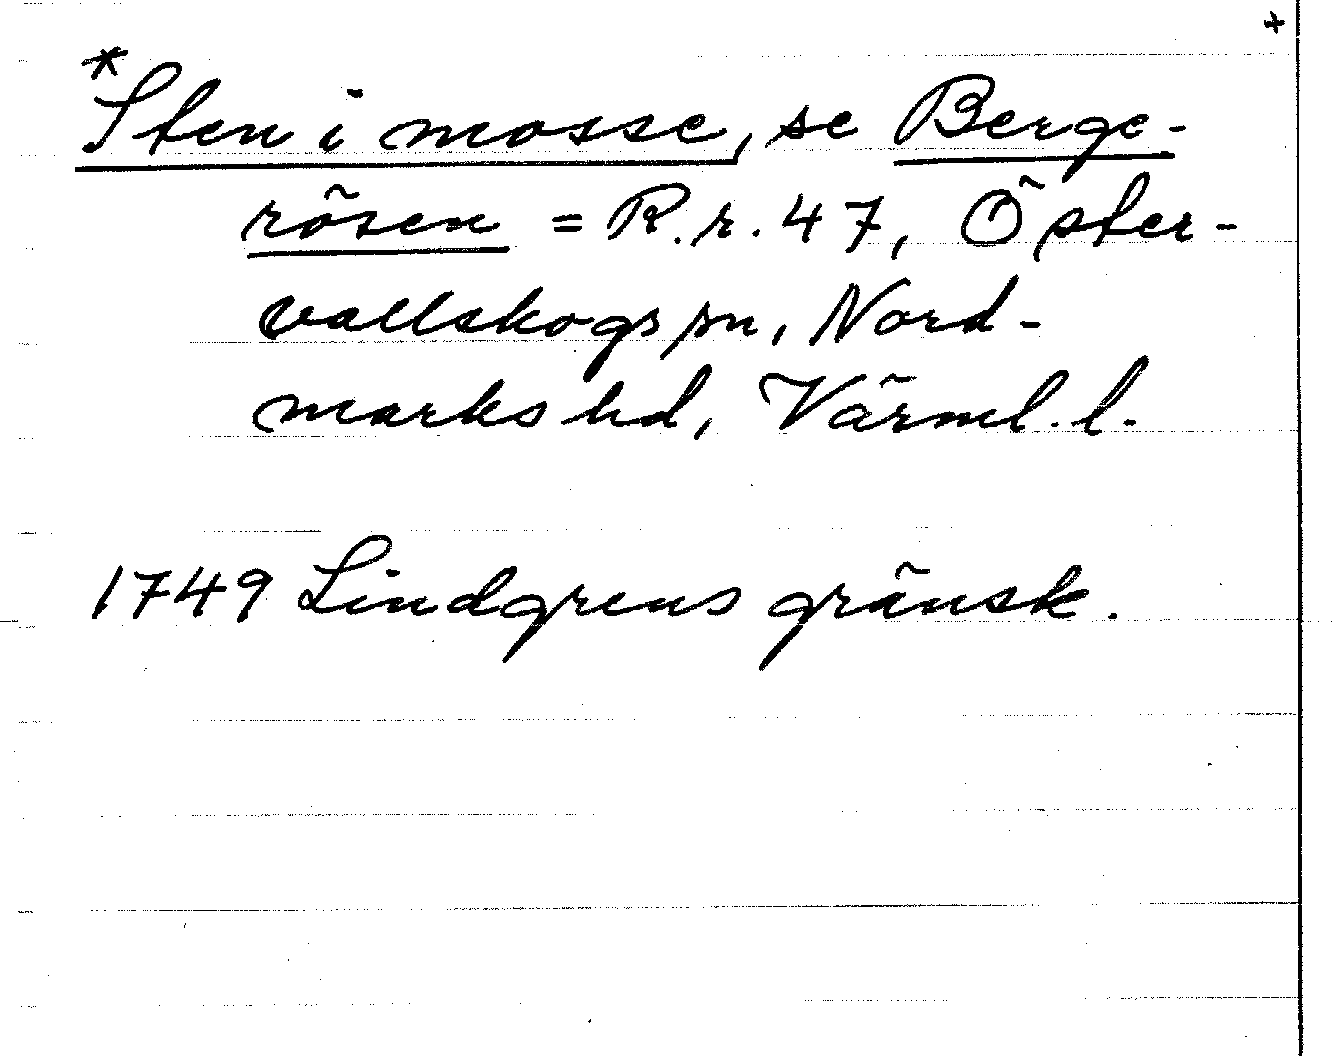 +
*Sten i mosse, se Berge-
rösen = R.r. 47, Öster-
vallskogs sn, Nord-
marks hd, Värml. l.
1749 Lindgrens gränsk.